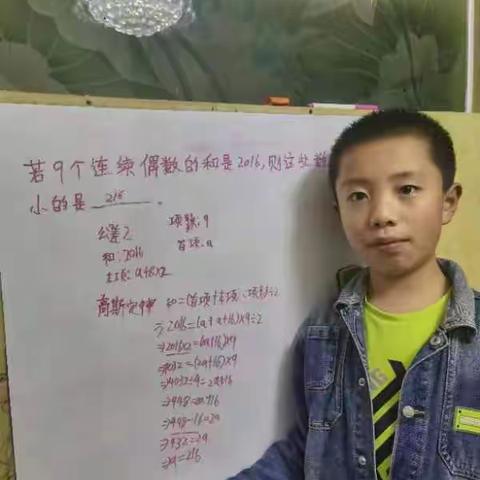 若9个连续偶数的和是2016,则这些数
小的是 216 。
公差2 项数:9
和:2016 首项:a
末项:a+8×2
高斯定律 和=(首项+末项)×项数÷2
⇒2016=(a+a+16)×9÷2
⇒2016×2=(2a+16)×9
⇒4032=(2a+16)×9
⇒4032÷9=2a+16
⇒448=2a+16
⇒448-16=2a
⇒432=2a
⇒a=216